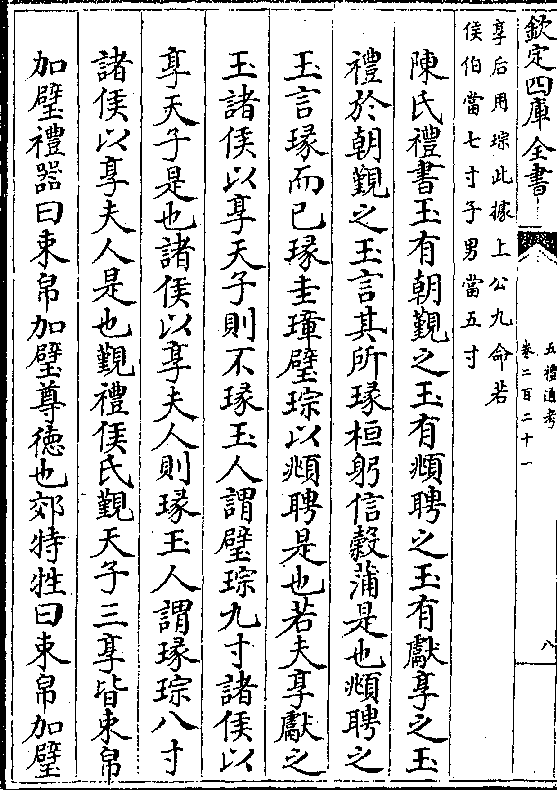 欽定四庫全書
五禮通考
卷二百二十一
八
享后用琮此據上公九命若
侯伯當七寸子男當五寸
陳氏禮書玉有朝覲之玉有頫聘之玉有獻享之玉
禮於朝覲之玉言其所瑑桓躬信榖蒲是也頫聘之
玉言瑑而已瑑圭璋璧琮以頫聘是也若夫享獻之
玉諸侯以享天子則不瑑玉人謂璧琮九寸諸侯以
享天子是也諸侯以享夫人則瑑玉人謂瑑琮八寸
諸侯以享夫人是也覲禮侯氏覲天子三享皆束帛
加璧禮器曰束帛加璧尊德也郊特牲曰束帛加璧